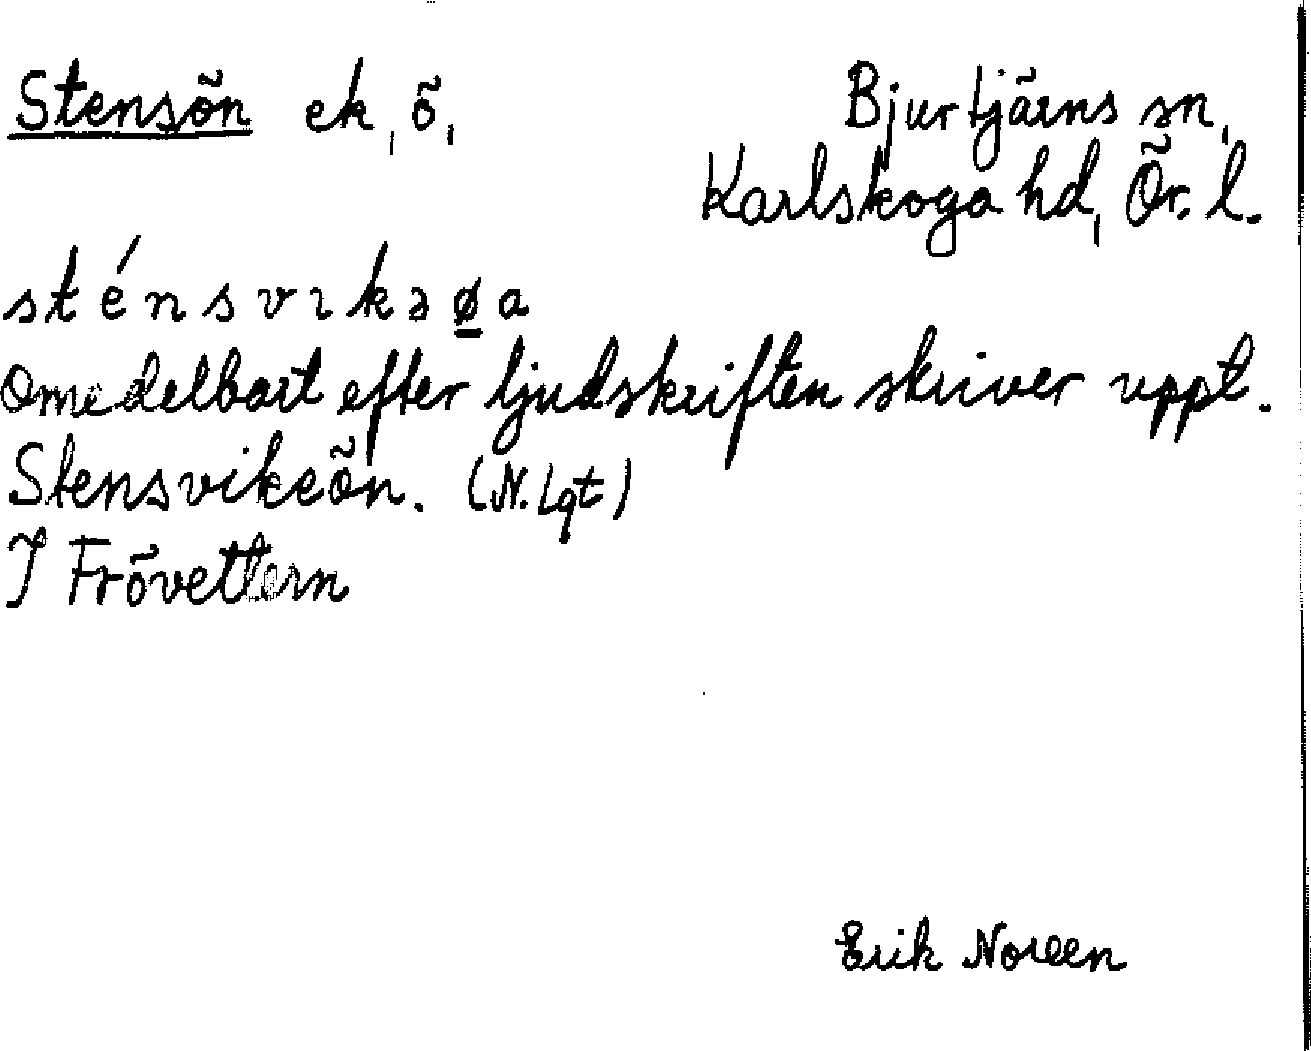 Stensön ek, ö,
Bjurtjärns sn,
Karlskoga hd, Ör. l.
sténsvıkəø̲a
Omedelbart efter ljudskriften skriver uppt.
Stensvikeön. (N. Lqt)
I Frövettern
Erik Noreen